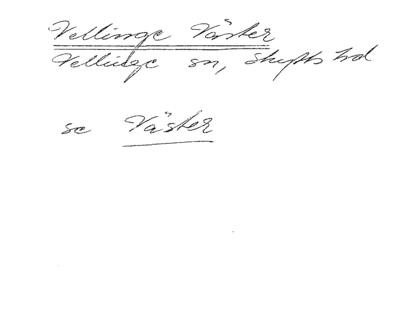 Vellinge Väster
Vellinge sn, Skytts hd
se Väster